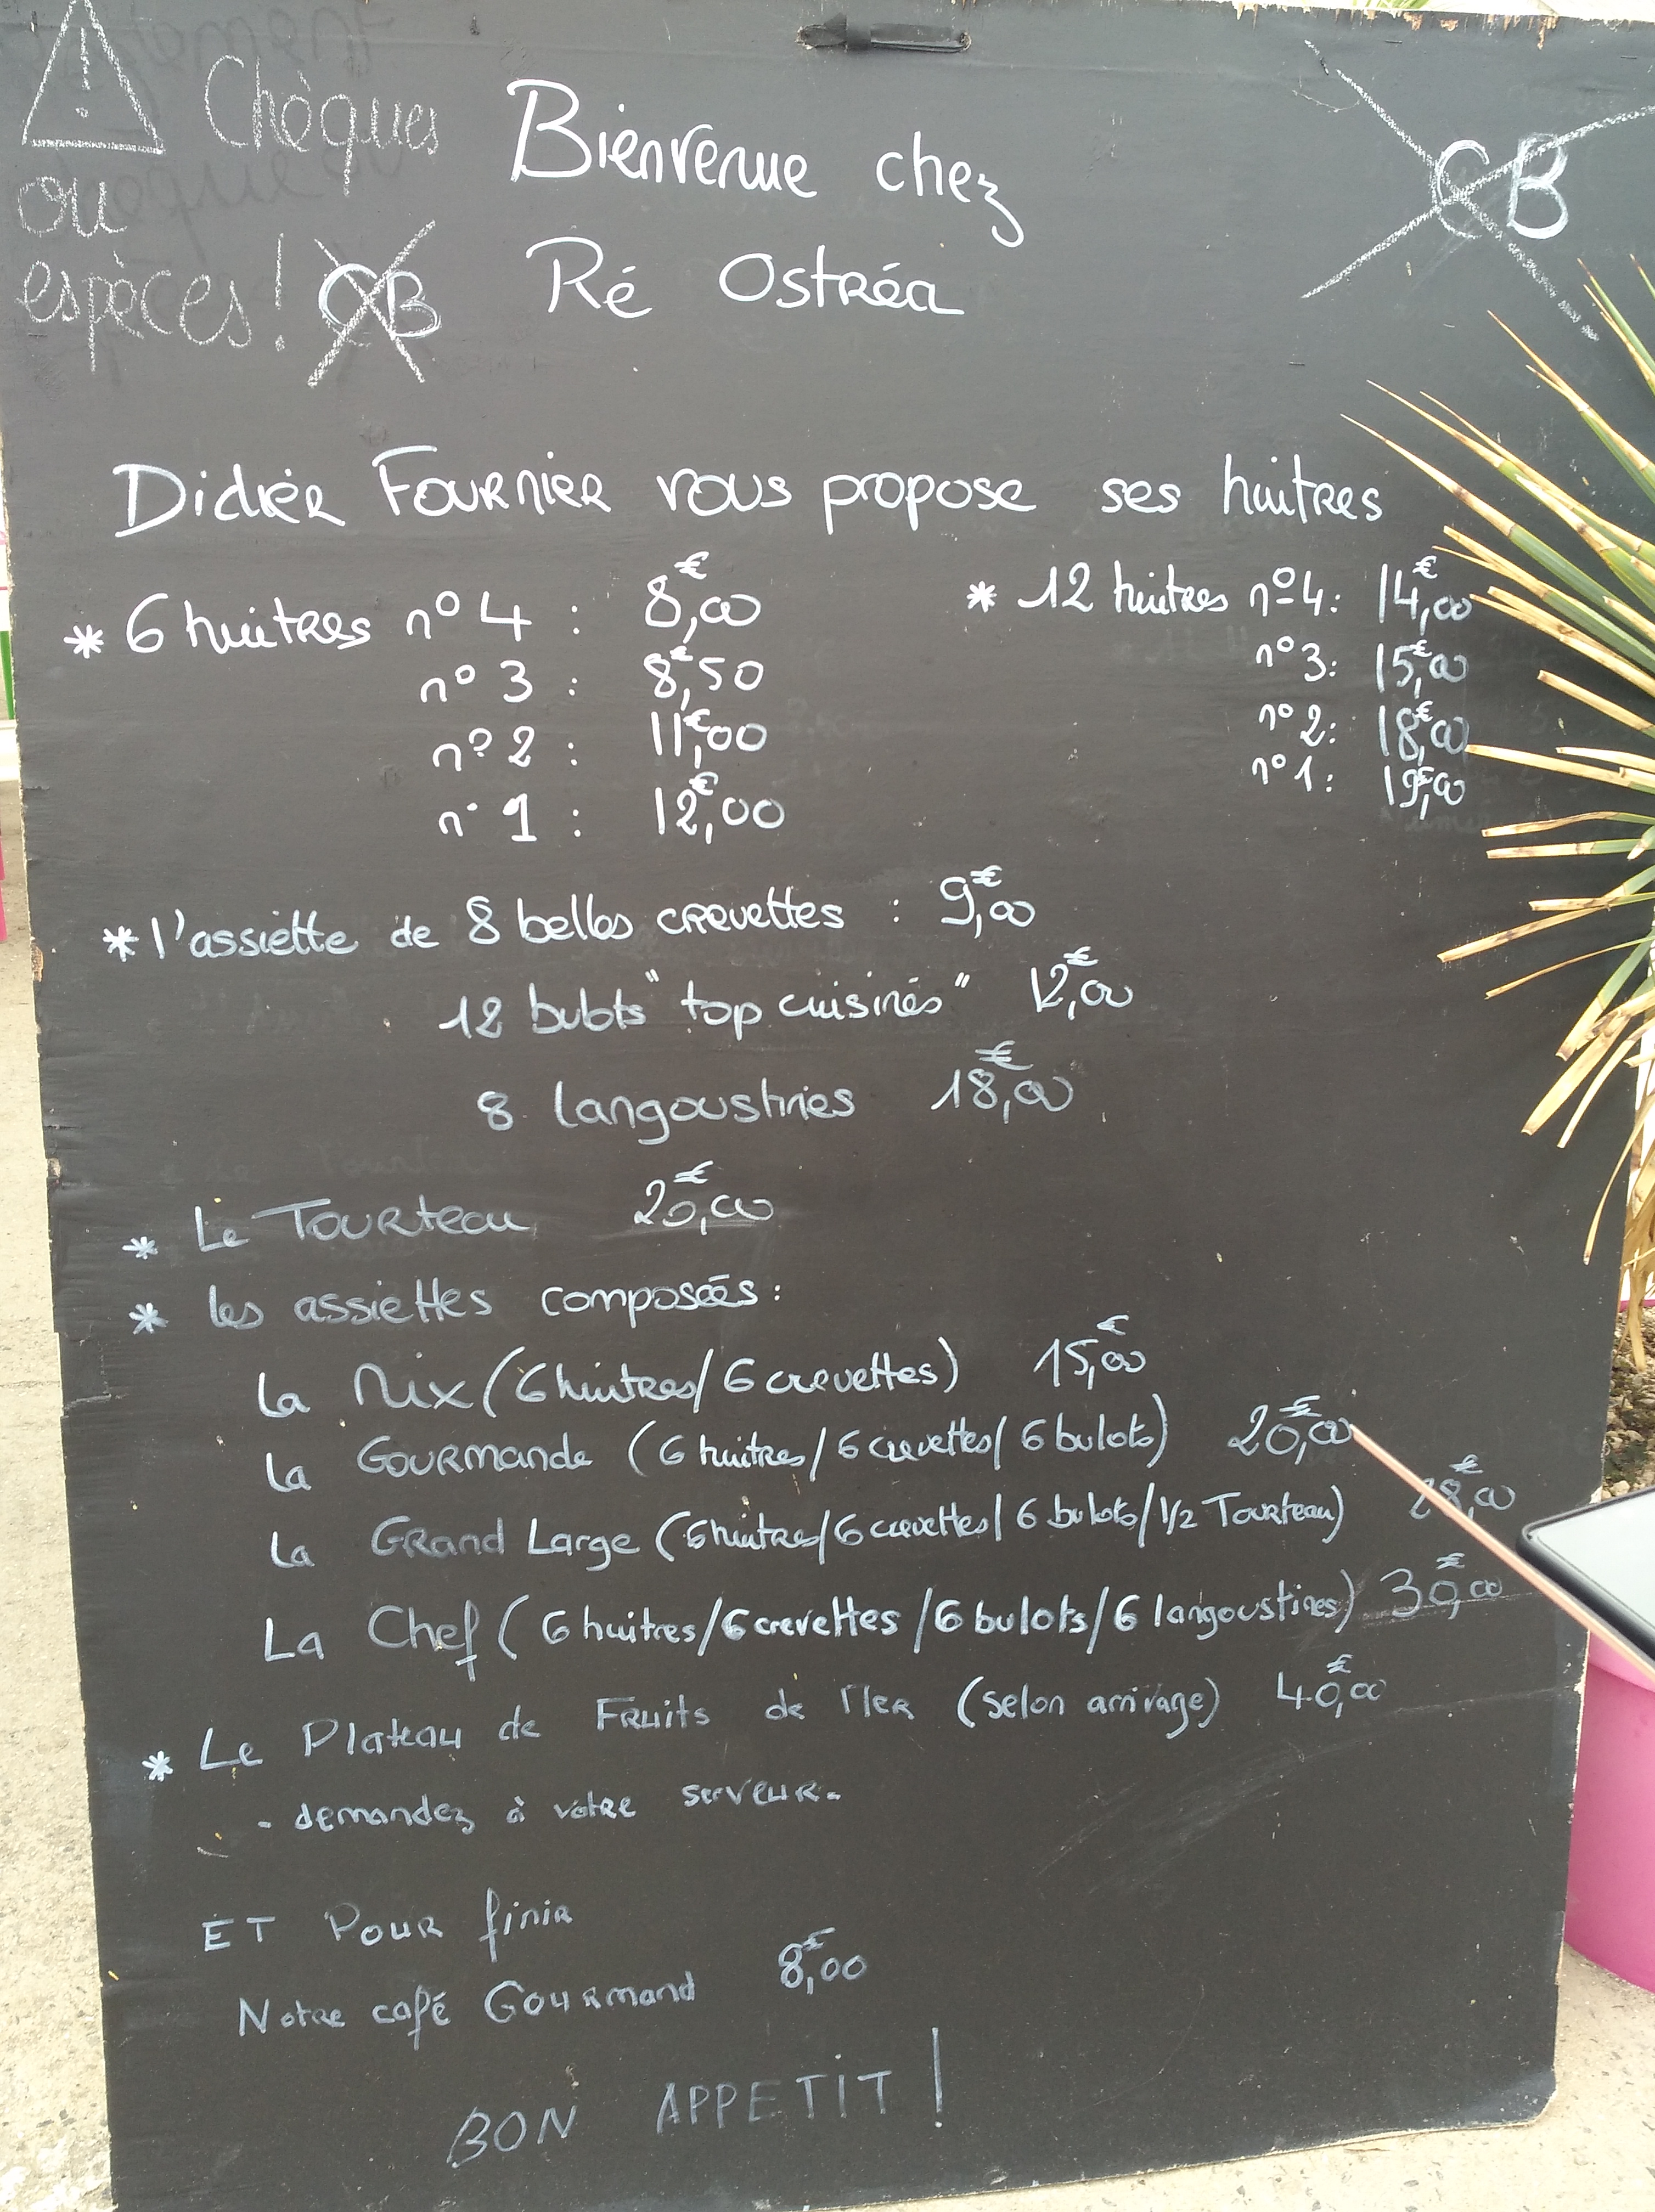 Chèques
ou
espèces! CB
Bienvenue chez
Ré Ostréa
CB
Didier Fournier vous propose ses huitres
* 6 huitres n° 4 : 8,00 €
n° 3 : 8,50 €
n° 2 : 11,00 €
n° 1 : 12,00 €
* 12 huitres n° 4 : 14,00 €
n° 3 : 15,00 €
n° 2 : 18,00 €
n° 1 : 19,00 €
* l'assiette de 8 belles crevettes : 9,00 €
12 bulots "top cuisinés" 12,00 €
8 langoustines 18,00 €
* Le Tourteau 20,00 €
* les assiettes composées :
La Nix (6 huitres/6 crevettes) 15,00 €
La Gourmande (6 huitres/6 crevettes/6 bulots) 20,00 €
La Grand Large (6 huitres/6 crevettes/6 bulots/1/2 Tourteau) 28,00 €
La Chef (6 huitres/6 crevettes/6 bulots/6 langoustines) 30,00 €
* Le Plateau de Fruits de Mer (selon arrivage) 40,00 €
- demandez à votre serveur -
ET Pour finir
Notre café Gourmand 8,00 €
BON APPETIT !